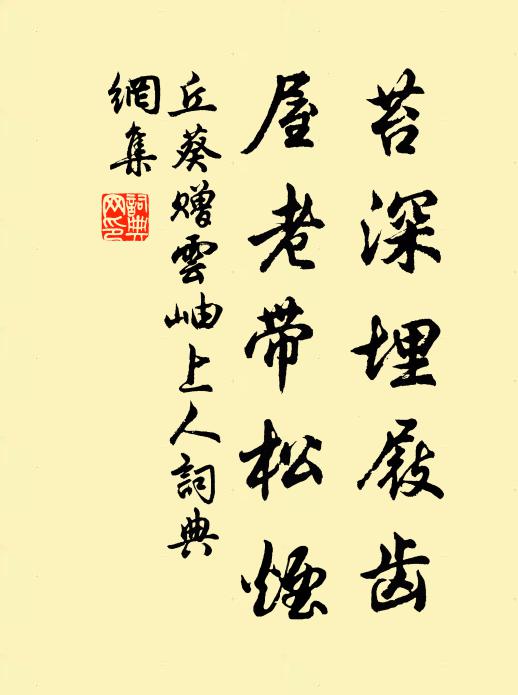 苔深埋屐齿
屋老带松煙
丘葵赠雲岫上人詞典
網集
詞典
网印